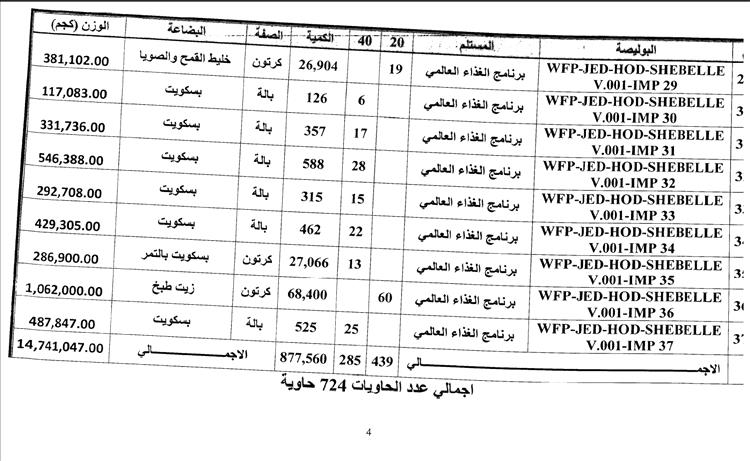 البوليصة المستلم 20 40 الكمية الصفة البضاعة الوزن (كجم)
WFP-JED-HOD-SHEBELLE V.001-IMP 29 برنامج الغذاء العالمي 19 26,904 كرتون خليط القمح والصويا 381,102.00
WFP-JED-HOD-SHEBELLE V.001-IMP 30 برنامج الغذاء العالمي 6 126 بالة بسكويت 117,083.00
WFP-JED-HOD-SHEBELLE V.001-IMP 31 برنامج الغذاء العالمي 17 357 بالة بسكويت 331,736.00
WFP-JED-HOD-SHEBELLE V.001-IMP 32 برنامج الغذاء العالمي 28 588 بالة بسكويت 546,388.00
WFP-JED-HOD-SHEBELLE V.001-IMP 33 برنامج الغذاء العالمي 15 315 بالة بسكويت 292,708.00
WFP-JED-HOD-SHEBELLE V.001-IMP 34 برنامج الغذاء العالمي 22 462 بالة بسكويت 429,305.00
WFP-JED-HOD-SHEBELLE V.001-IMP 35 برنامج الغذاء العالمي 13 27,066 كرتون بسكويت بالتمر 286,900.00
WFP-JED-HOD-SHEBELLE V.001-IMP 36 برنامج الغذاء العالمي 60 68,400 كرتون زيت طبخ 1,062,000.00
WFP-JED-HOD-SHEBELLE V.001-IMP 37 برنامج الغذاء العالمي 25 525 بالة بسكويت 487,847.00
الاجمـــــالي 439 285 877,560 الاجمـــــالي 14,741,047.00
اجمالي عدد الحاويات 724 حاوية
4